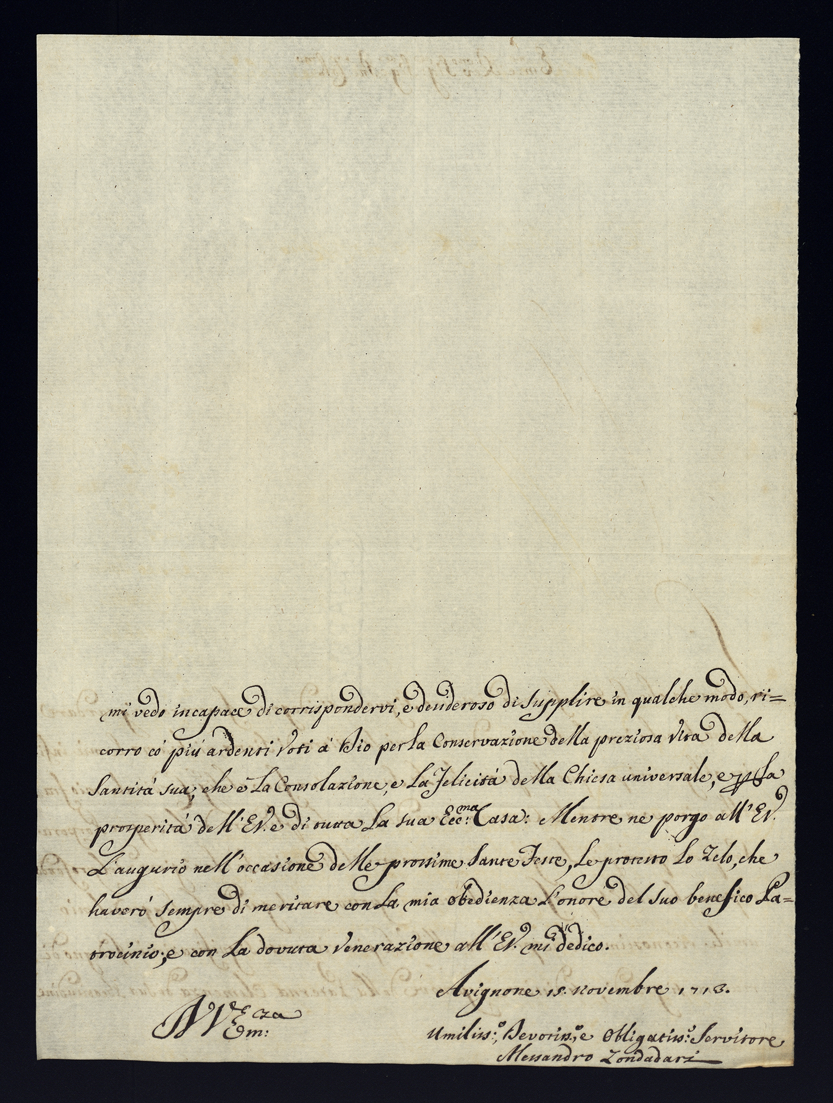 mi vedo incapace di corrispondervi, e desideroso di supplire in qualche modo, ri=
corro có piu ardenti Voti à Dio per la Conservazione della preziosa Vita della
Santità sua, che è la Consolazione, e la Felicità della Chiesa universale, e per la
prosperità dell'EV. e di tutta la sua Ecc:ma Casa: Mentre ne porgo all'EV.
L'augurio nell'occasione delle prossime Sante Feste, Le protesto lo Zelo, che
haverò sempre di meritare con la mia obedienza l'onore del suo benefico Pa=
trocinio; e con la dovuta Venerazione all'EV. mi dedico.
Avignone 15 novembre 1713.
Umiliss:o Devotiss:o e Obligatiss:o Servitore
Alessandro Zondadari